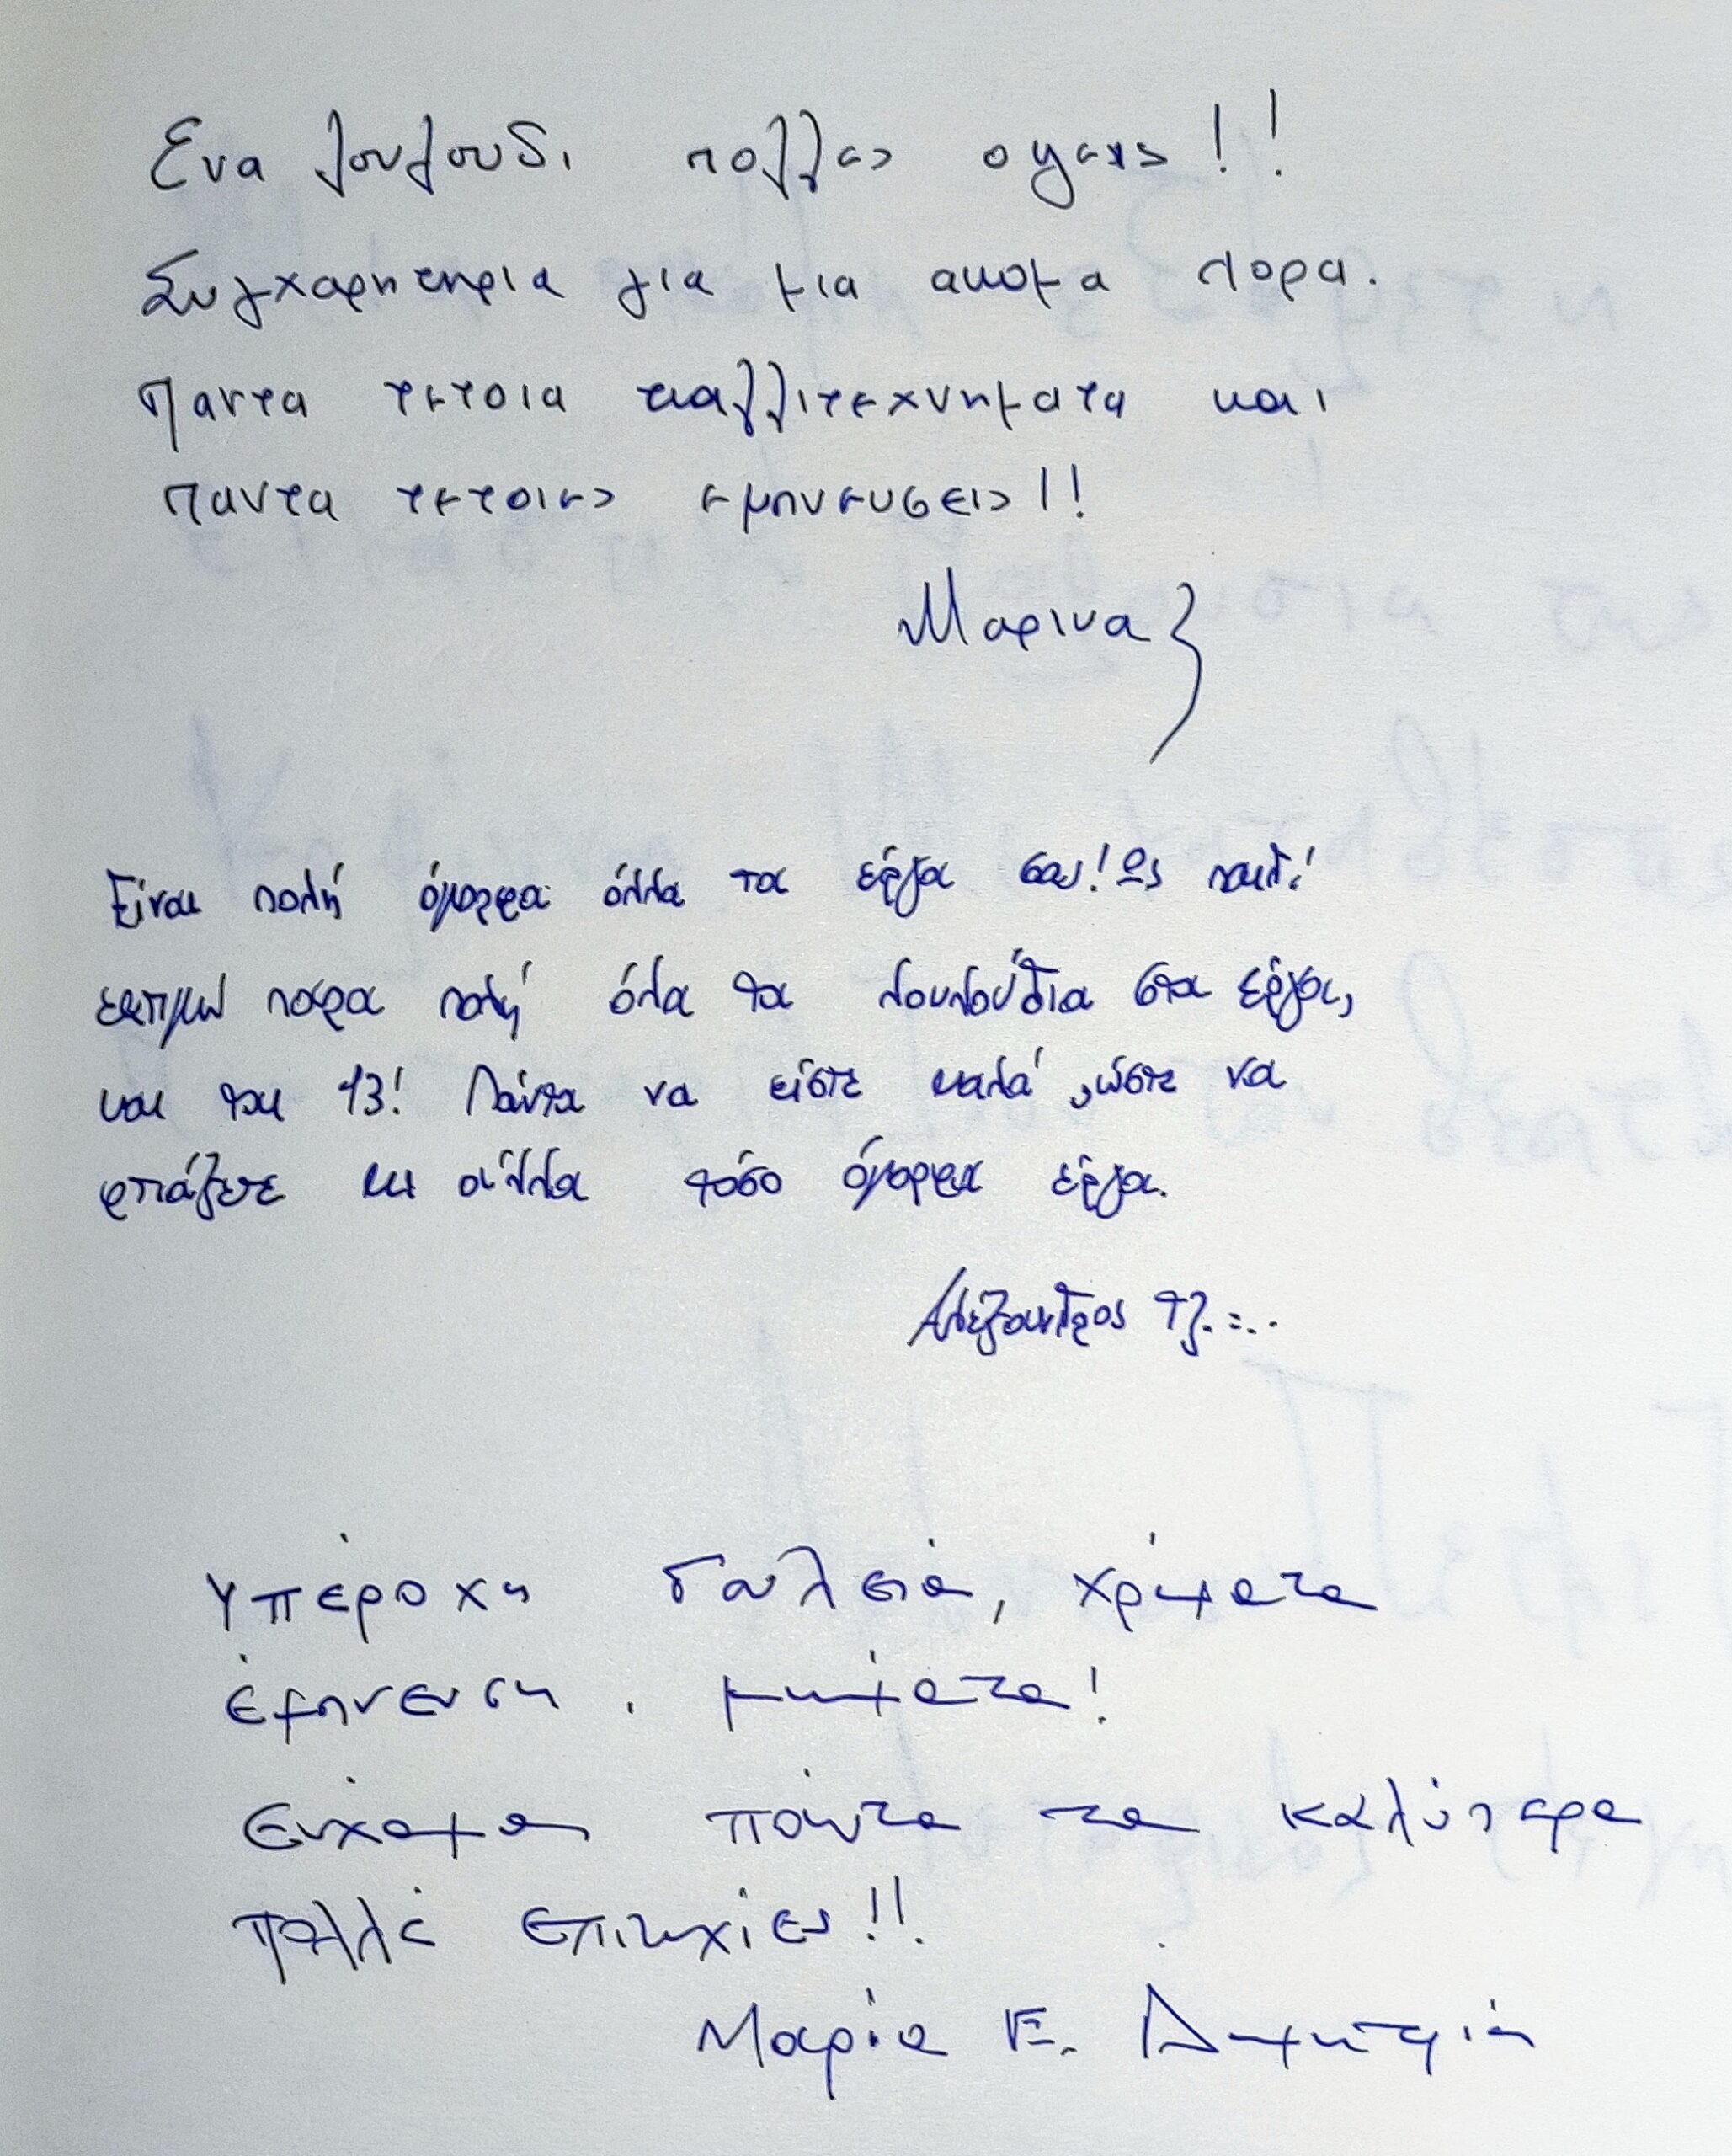 Ενα λουλουδι πολλες οψεις!!
Συγχαρητηρια για μια ακομα φορα.
Παντα τετοια καλλιτεχνηματα και
παντα τετοιες εμπνευσεις!!
Μαρινα
Είναι πολή όμορφα όλλα τα έργα σας! Ως παιδί
εκτιμώ παρα πολή όλα τα λουλούδια στα έργα,
και τα 13! Πάντα να είστε καλά, ώστε να
φτιάξετε κι άλλα τόσο όμορφα έργα.
Αλέξανδρος Τζ....
Υπέροχη δουλειά, χρώματα
έμπνευση, μηνύματα!
Εύχομαι πάντα τα καλύτερα
πολλές επιτυχίες!!
Μαρία Ε.